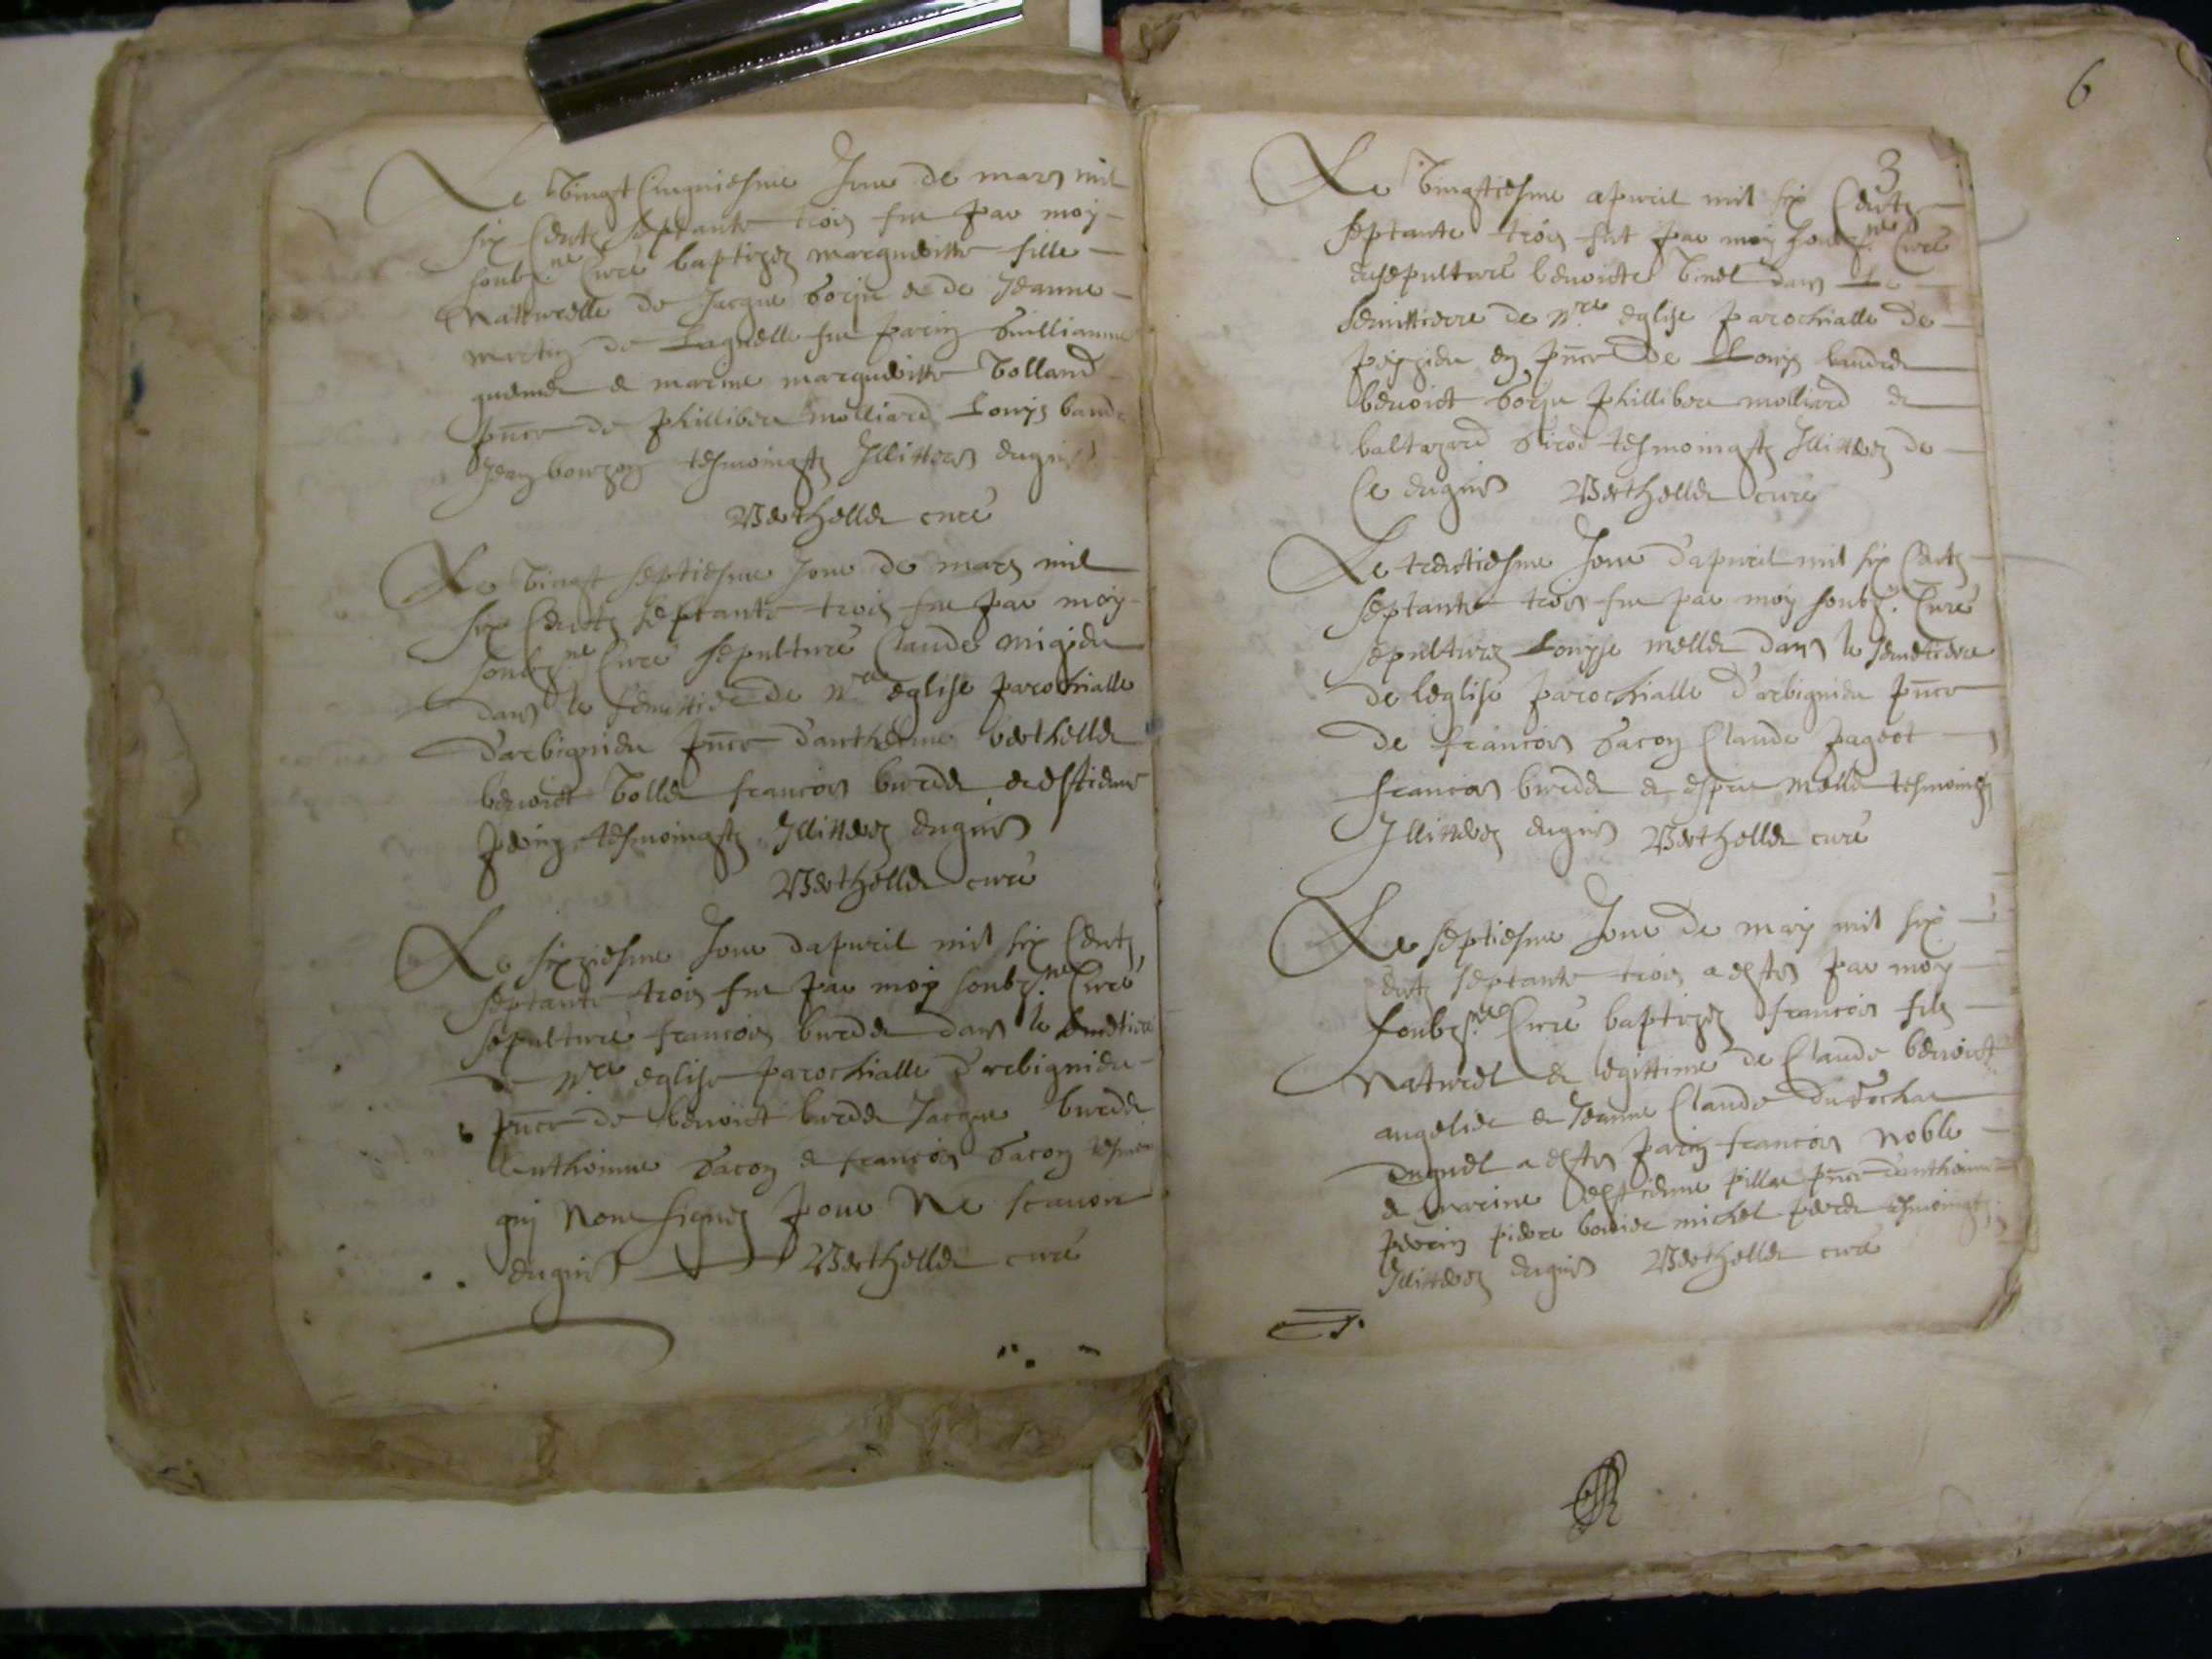 Le vingt cinquiesme Jour de mars mil
six centz septante trois fut par moy
soubz.ne Curé baptizez margueritte fille
Naturelle de Jacque Gorju et de Jeanne
martin de Lagnelle fut parin Guilliaume
et marine margueritte Volland
pnce de phillibert molliard Louys baud
Jean bourzon tesmoingtz Illitterez enquis
Berthellet curé
Le vingt septiesme Jour de mars mil
six centz septante trois fut par moy
soubz.ne Curé sepulturé Claude migiet
dans le semittier de nre eglise parochialle
d'arbignieu pnce d'anthelme berthellet
benoict Vollet francois burdet et estienne
perin tesmoingtz Illitterez enquis
Berthellet curé
Le sixziesme Jour dapvril mil six centz
septante trois fut par moy soubz.ne Curé
sepulturé francois burdet dans le semetiere
de nre eglise parochialle d'arbignieu
pnce de benoict burdet Jacque burdet
Anthoinne Gacon et francois Gacon
qui none signez pour Ne scavoir
enquis Berthellet curé
6
3
Le vingtiesme apvril mil six centz
septante trois fut par moy soubz.ne Curé
ensepulturé benoicte Vinel dans Le
semittierre de nre eglise parochialle de
peyzieu en pnce de Louys baudet
benoict Gorju phillibert molliard et
baltazard Girod tesmoingtz Illitterez de
Ce enquis Berthellet curé
Le trentiesme Jour d'apvril mil six centz
septante trois fut par moy soubz. Curé
sepulturez Louyse mellet dans le semetiere
de leglise parochialle d'arbignieu pnce
de francois Gacon Claude pageot
francois burdet et espri mellet tesmoingtz
Illitterez enquis Berthellet curé
Le septiesme Jour de may mil six
centz septante trois a esté par moy
soubzs.ne Curé baptizez francois filz
Naturel et legittime de Claude benoict
angelier et Jeanne Claude duRochat
duquel a estés parin francois Noble
et marine estienne pillat pnce d'anthoinne
perrin pierre bovier michel perret tesmoingtz
Illitterez enquis Berthellet curé